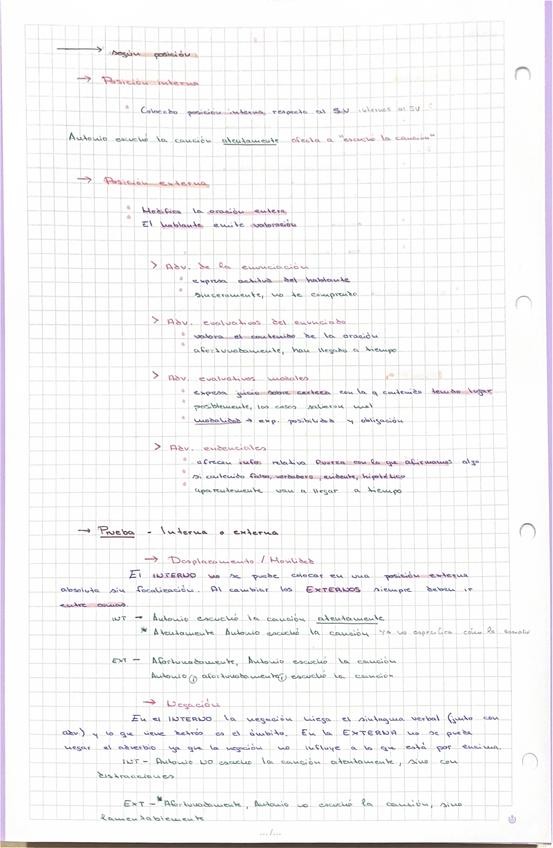 → según posición
→ Posición interna
° Colocado posición interna respecto al SV internos al SV
Antonio escuchó la canción atentamente afecta a "escuchó la canción"
→ Posición externa
° Modifica la oración entera
° El hablante emite valoración
> Adv. de la enunciación
° expresa actitud del hablante
° sinceramente, no te comprendo
> Adv. evaluativos del enunciado
° valora el contenido de la oración
° afortunadamente, han llegado a tiempo
> Adv. evaluativos modales
° expresa juicio sobre certeza con la q contenido tenido lugar
° posiblemente, las cosas salieron mal
° modalidad → exp. posibilidad y obligación
> Adv. evidenciales
° ofrecen infor. relativa fuerza con la que afirmamos algo
° si contenido falso, verdadero, evidente, hipotético
° aparentemente van a llegar a tiempo
→ Prueba - Interna o externa
→ Desplazamiento / Movilidad
El INTERNO no se puede colocar en una posición externa
absoluta sin focalización. Al cambiar los EXTERNOS siempre deben ir
entre comas.
INT → Antonio escuchó la canción atentamente
* Atentamente Antonio escuchó la canción ya no especifica cómo la escuchó
EXT - Afortunadamente, Antonio escuchó la canción
Antonio, afortunadamente, escuchó la canción
→ Negación
En el INTERNO la negación niega el sintagma verbal (junto con
adv) y lo que tiene detrás es el ámbito. En la EXTERNA no se puede
negar el adverbio ya que la negación no influye a lo que está por encima.
INT - Antonio NO escuchó la canción atentamente, sino con
distracciones
EXT - *Afortunadamente, Antonio no escuchó la canción, sino
lamentablemente
.../...